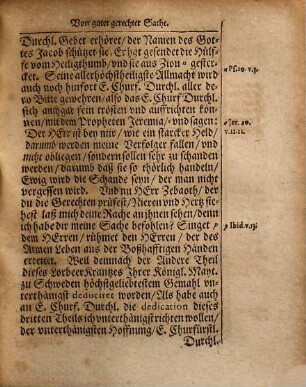 Von guter gerechter Sache.
Durchl. Gebet erhöret/ der Namen des Got-
tes Jacob schützet sie. Er hat gesendet die Hülf-
fe vom Heiligthumb/ und sie aus Zion º gester-
cket. Seine allerhöchstheiligste Allmacht wird
auch noch hinfort E. Churf. Durchl. aller de-
ro Bitte gewehren/ also das E. Churf Durchl.
sich anhägk fein trösten und auffrichten kön-
nen/ mit dem Propheten Jeremia/ und sagen:
Der HErr ist bey mir/ wie ein starcker Held/
darumb werden meine Verfolger fallen/ und
nicht obliegen/ sondern sollen sehr zu schanden
werden/ darumb daß sie so thörlich handeln/
Ewig wird die Schande seyn/ der man nicht
vergessen wird. Und nu HErr Zebaoth/ der
du die Gerechten prüfest/ Nieren und Hertz sie-
hest laß mich deine Rache an ihnen sehen/ denn
ich habe dir meine Sache befohlen/ Singet
dem HErren/ rühmet den HErren/ der des
Armen Leben aus der Boßhafftigen Händen
errettet. Weil demnach der Andere Theil
dieses Lorbeer Krantzes Ihrer Königl. Mayt.
zu Schweden höchstgeliebtestem Gemahl un-
terthänigst deduciret worden/ Als habe auch
an E. Churf. Durchl. die dedication dieses
dritten Theils ich unterthänigst richten wollen/
der unterthänigsten Hoffnung/ E. Churfürstl.
Durchl.
o Ps. 20. v. 3.
o Jer. 20.
v. 11. 12.
p Ibid. v. 13.